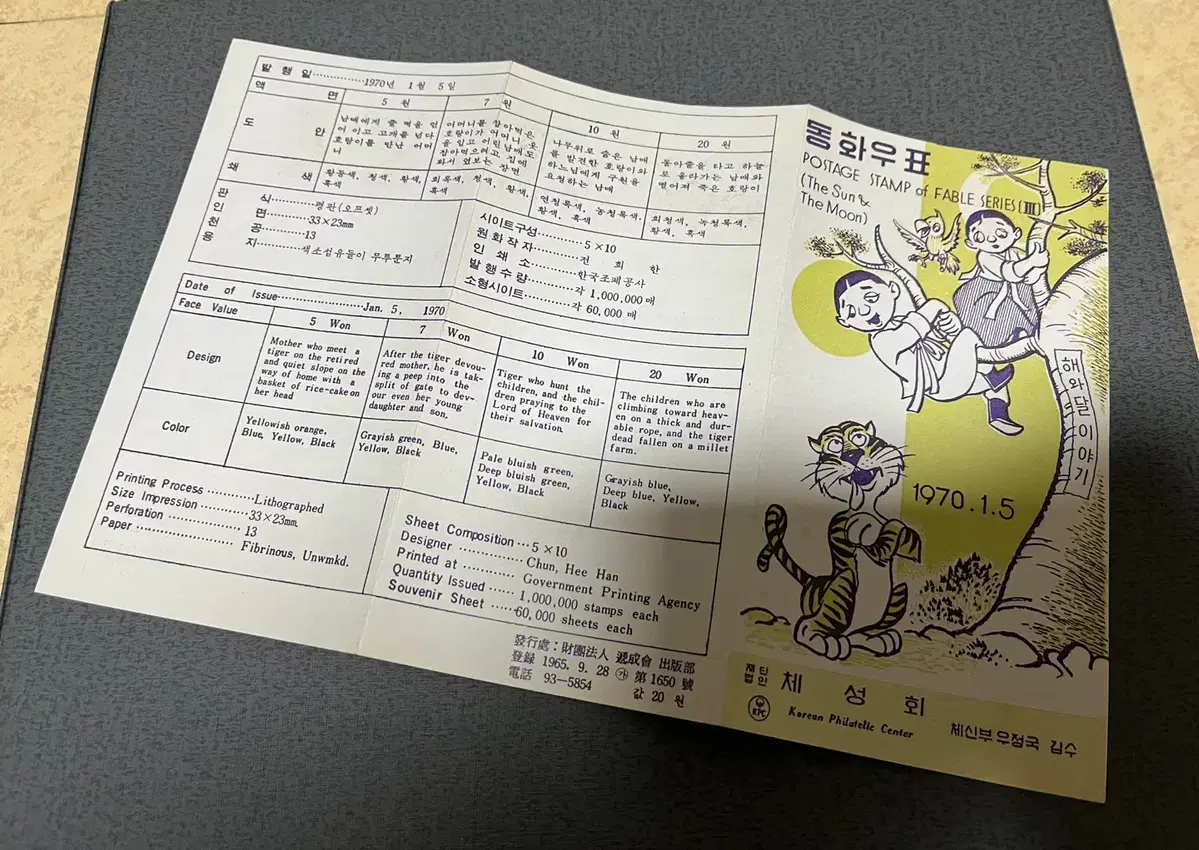 발행일··············1970년 1월 5일
액 면
5 원
7 원
10 원
20 원
도 안
남매에게 줄 떡을 얻
어 이고 고개를 넘다
호랑이를 만난 어머
니
어머니를 잡아먹은
호랑이가 어머니 옷
을 입고 어린남매도
잡아먹으려고 집에
와서 엿보는 장면
나무위로 숨은 남매
를 발견한 호랑이와
하느님에게 구원을
요청하는 남매
동아줄을 타고 하늘
로 올라가는 남매와
떨어져 죽은 호랑이
쇄 색
황등색, 청색, 황색,
흑색
회록색, 청색, 황색,
흑색
연청록색, 농청록색,
황색, 흑색
회청색, 녹청록색,
황색, 흑색
판 식··········평판(오프셋)
인 면··········33×23mm
천 공··········13
용 지··········색소섬유들이 무투문지
시이트구성··········5×10
원화작자··········전 희 한
인 쇄 소··········한국조폐공사
발행수량··········각 1,000,000매
소형시이트··········각 60,000 매
Date of Issue··············Jan. 5, 1970
Face Value
5 Won
7 Won
10 Won
20 Won
Design
Mother who meet a
tiger on the retired
and quiet slope on the
way of home with a
basket of rice-cake on
her head
After the tiger devou-
red mother, he is tak-
ing a peep into the
split of gate to dev-
our even her young
daughter and son.
Tiger who hunt the
children, and the chil-
dren praying to the
Lord of Heaven for
their salvation.
The children who are
climbing toward heav-
en on a thick and dur-
able rope, and the tiger
dead fallen on a millet
farm.
Color
Yellowish orange,
Blue, Yellow, Black
Grayish green, Blue,
Yellow, Black
Pale bluish green,
Deep bluish green,
Yellow, Black
Grayish blue,
Deep blue, Yellow,
Black
Printing Process ··········Lithographed
Size Impression ··········33×23mm.
Perforation ··········13
Paper ··········Fibrinous, Unwmkd.
Sheet Composition ···5×10
Designer ··········Chun, Hee Han
Printed at ··········Government Printing Agency
Quantity Issued ·····1,000,000 stamps each
Souvenir Sheet ·····60,000 sheets each
發行處：財團法人 遞成會 出版部
登錄 1965. 9. 28 ㉮ 第1650 號
電話 93-5854
값 20 원
동화우표
POSTAGE STAMP of FABLE SERIES (III)
(The Sun &
The Moon)
해와달이야기
1970.1.5
재단
법인 체성회
KPC
Korean Philatelic Center
체신부우정국 감수